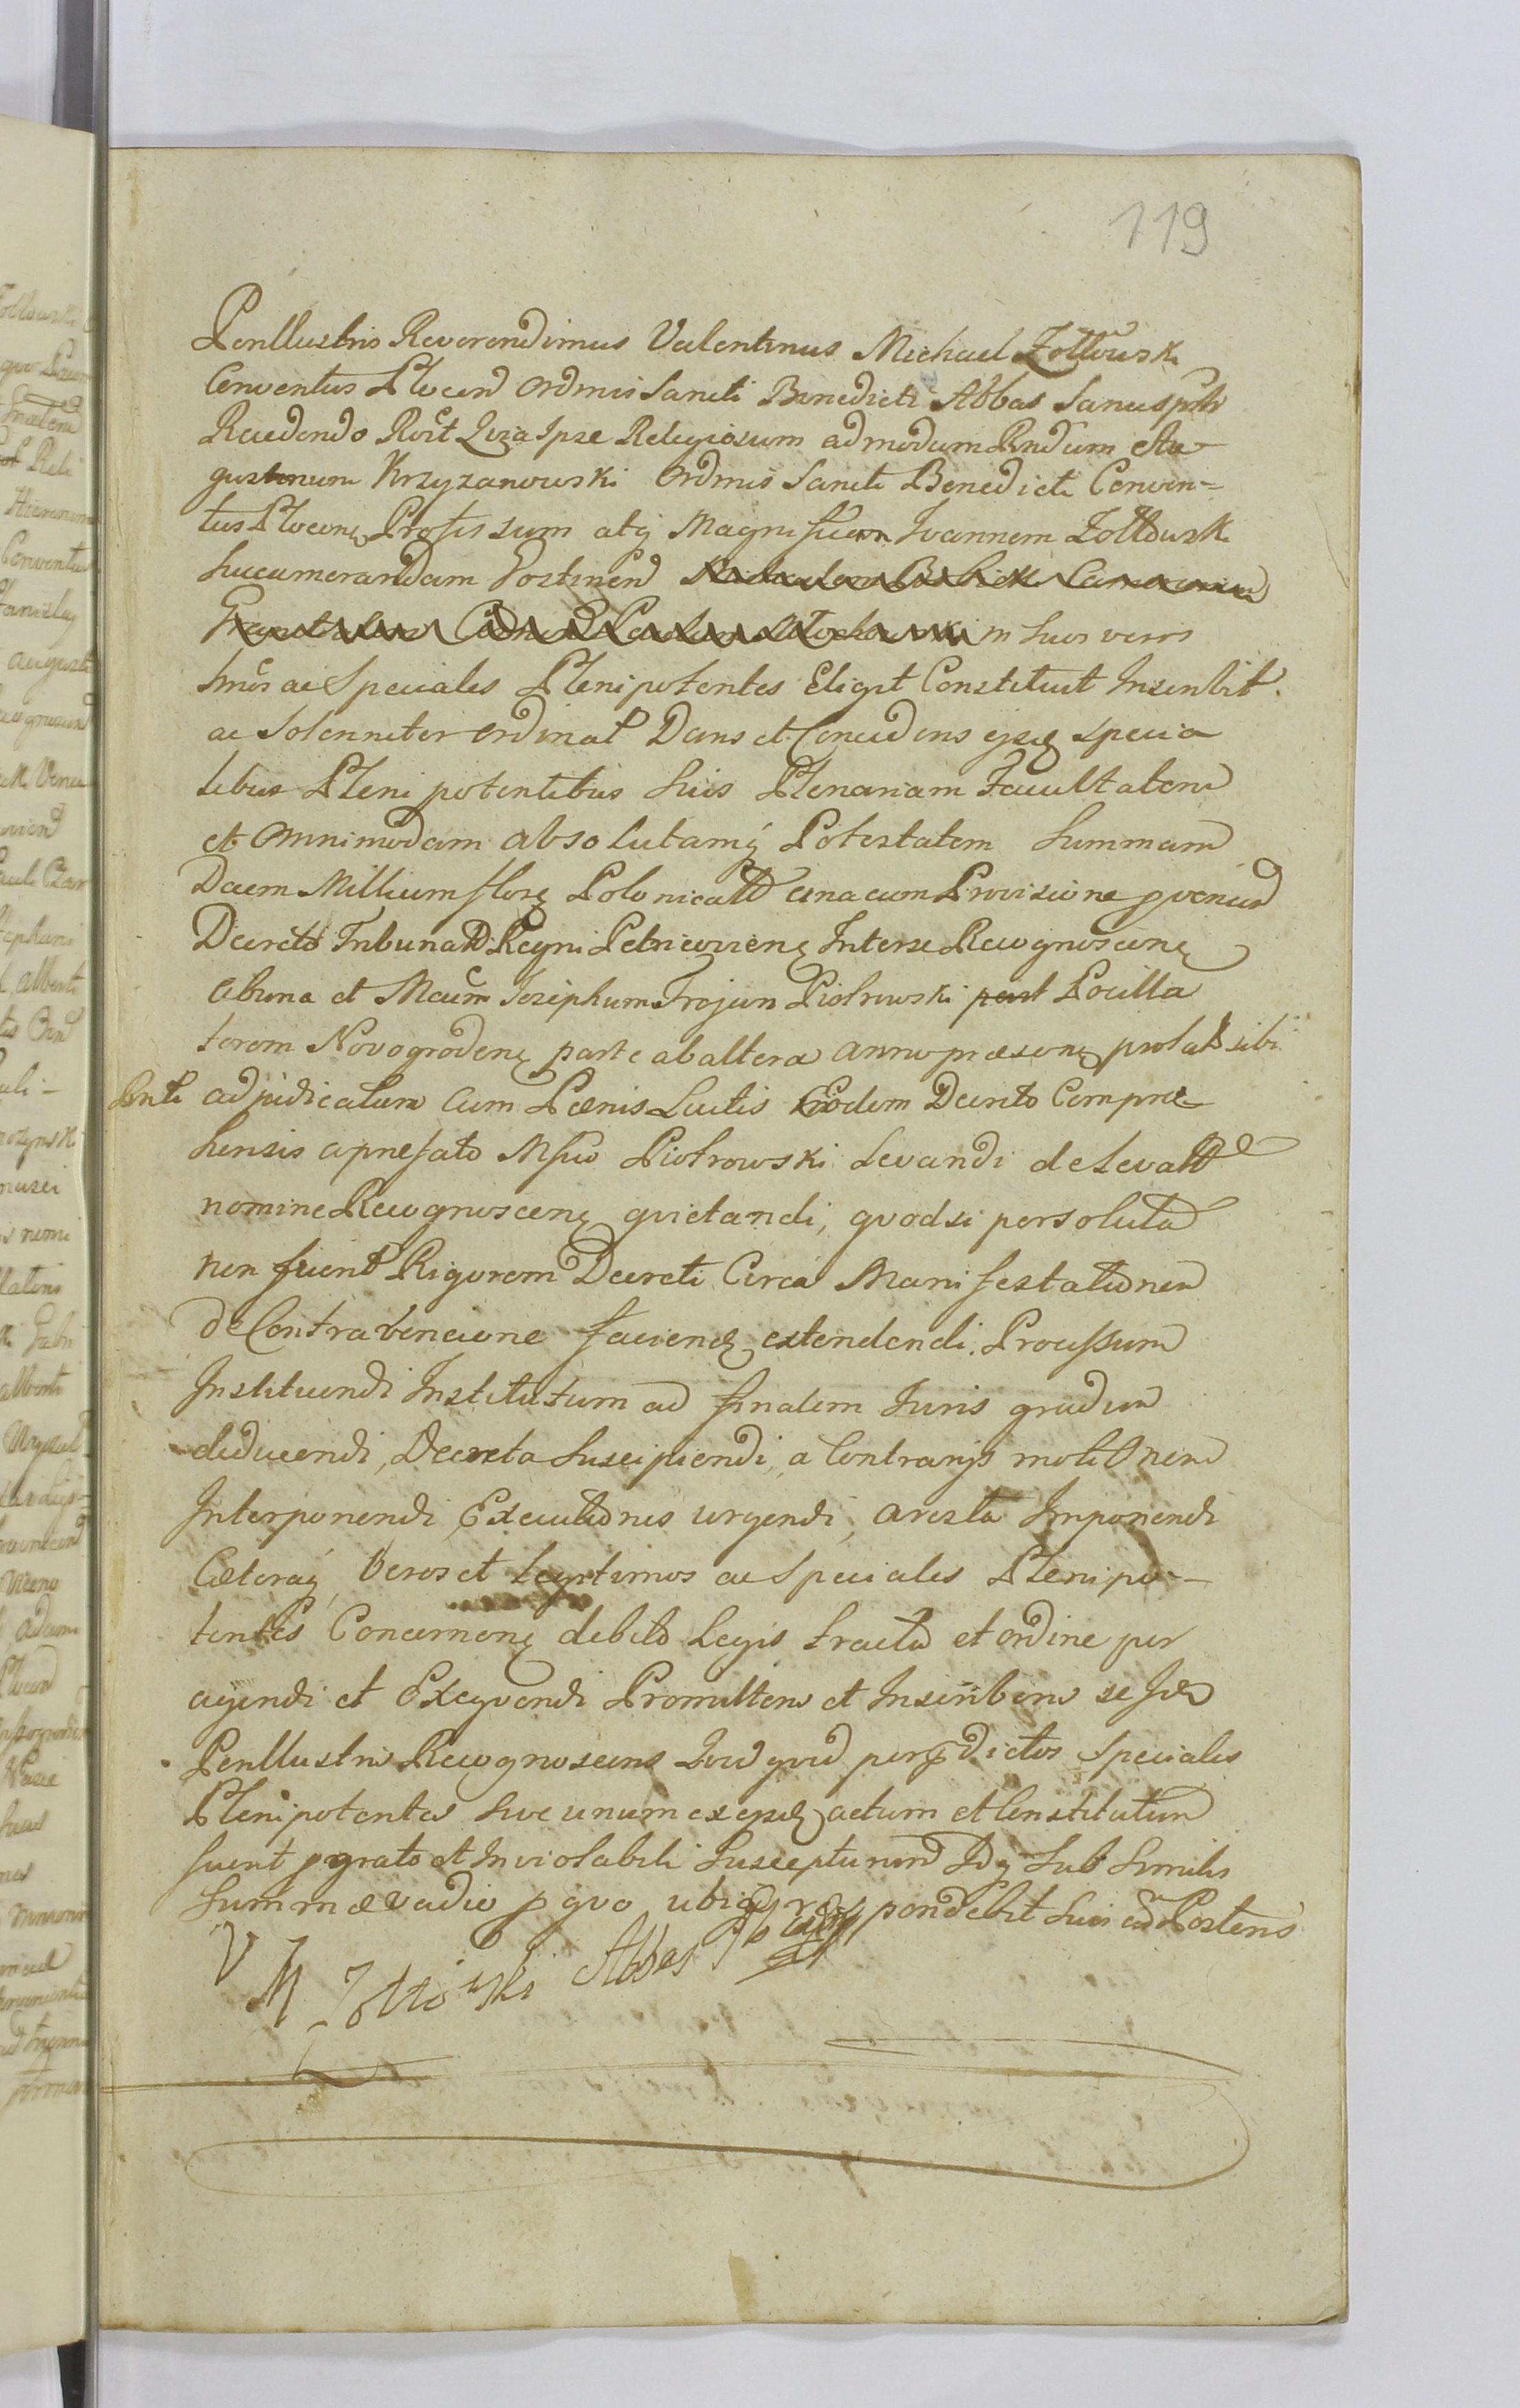 119
Perillustris Reverendimus Valentinus Michael Żołtowsk
Conventus Plocen Ordinis Sancti Benedicti Abbas Sanus pttr
Recedendo Rost Quia Ipse Religiosum admodum Rndum Au-
gustinum Krzyzanowski Ordinis Sancti Benedicti Conven=
tus Plocen Professum atq Magnificum Ivannem Żołtowsk
Succamerandam Gostinen
in suos veros
lmos ac Speciales Plenipotentes Eligit Constituit Inscribit
ac Solenniter Ordinat Dans et Concedens ejsq specia
libus Plenipotentibus suis Plenariam Facultatem
et Omnimodam absolutamq Potestatem Summam
Decem Millium flor Polonicall una cum Provisione pvenien
Decreto Tribunall Regni Petricovien Inter se Recognoscen
ab una et Mcum Iosephum Trojan Piotrowski Pocilla
torem Novogroden parte ab altera anno præsen prolat sibi
adjudicatam cum Pœnis Luitis Eodem Decreto Compre
hensis a præfato Mfico Piotrowski Levandi de Levatt
nomine Recognoscen quietandi, quodsi persoluta
non fuerit Rigorem Decreti Circa Manifestationem
de Contravencione faciend extendendi Processum
Instituendi Institutum ad finalem Iuris gradum
deducendi, Decreta Suscipiendi, a Contrarijs motionem
Interponendi Executiones urgendi, aresta Imponendi
Cæteraq Veros et Legitimos ac Speciales Plenipo-
tentes Concernen debito Legis tractu et ordine per
agendi et Exequendi Promittens et Inscribens se Idem
Perillustris Recognoscens Quidquid per pdictos Speciales
Plenipotentes sive unum ex ejsd actum et Constitutum
fuerit pgrato et Inviolabili Suscepturum Idq Sub Similis
Summæ vadio p quo ubiq respondebit Sui ad Posteris
V M Żołtowski Abbas